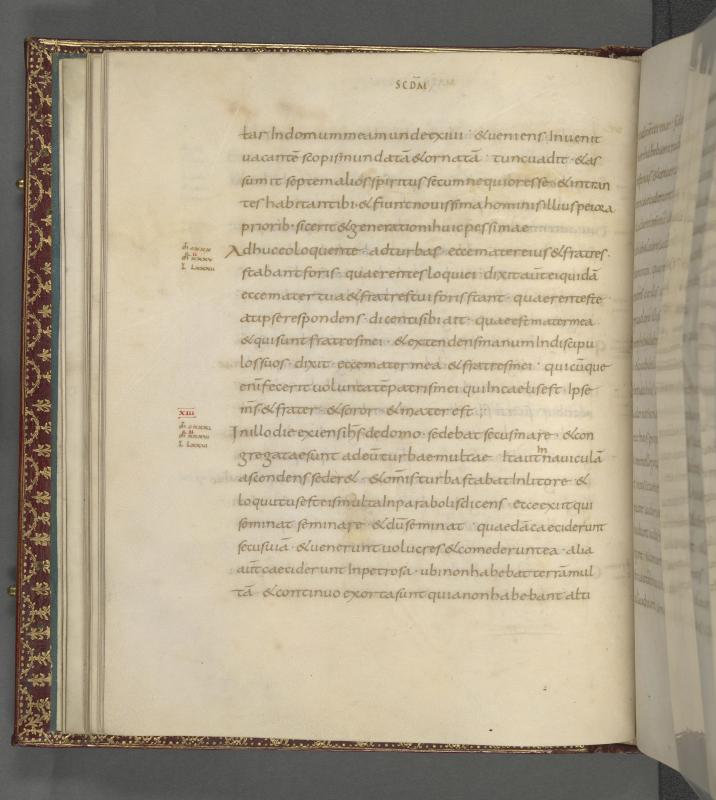 SCDM
tar Indomum meam unde exiui · & ueniens Inuenit
uacantē scopis mundatā & ornatā · tunc uadit · & as
sumit septem alios spiritus secum nequiores se · & intran
tes habitant ibi · & fiunt nouissima hominis illius peiora
priorib · sic erit & generationi huic pessimae
Adhuc eo loquente · ad turbas ecce mater eius & fratres ·
stabant foris · quaerentes loqui ei dixit aūt ei quidā
ecce mater tua & fratres tui foris stant · quaerentes te
at ipse respondens · dicenti sibi ait · quae est mater mea
& qui sunt fratres mei · & extendens manum In discipu
los suos · dixit · ecce mater mea & fratres mei · quicūque
enī fecerit uoluntatē patris mei qui In caelis est · Ipse
m̄s & frater · & soror · & mater est ;
XIII
In illo die exiens ih̄s de domo · sedebat secus mare · & con
gregatae sunt ad eū turbae multae · Ita ut In nauiculā
ascendens seder& · & om̄is turba stabat In litore · &
loquutus est eis multa In parabolis dicens · ecce exiit qui
seminat seminare · & dū seminat · quaedā caeciderunt
secus uiā · & uenerunt uolucres & comederunt ea · alia
aūt caeciderunt In petrosa · ubi non habebat terrā mul
tā · & continuo exorta sunt quia non habebant alti